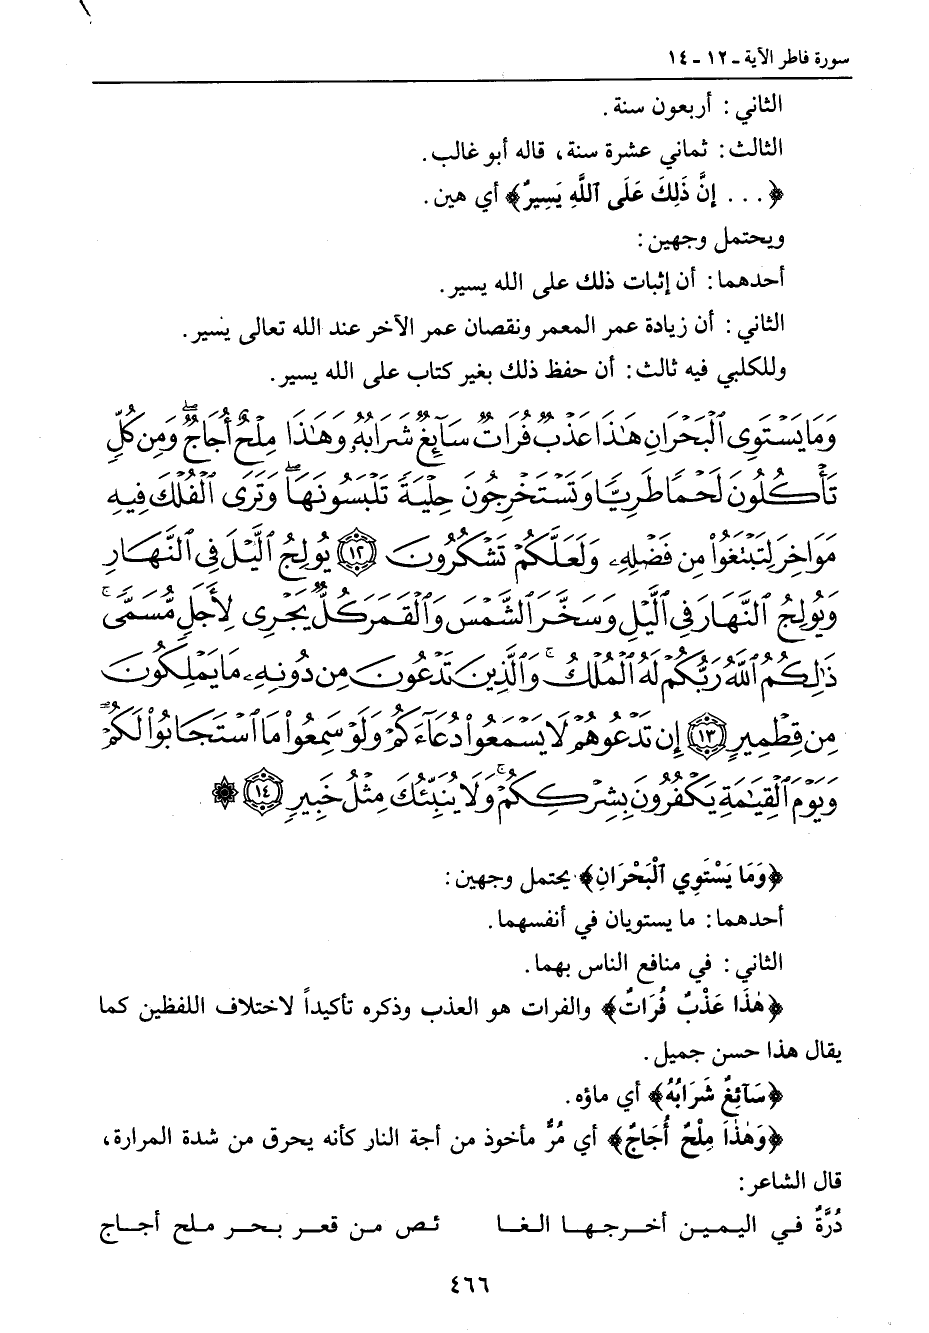 سورة فاطر الآية ـ ١٢ ـ ١٤
الثاني : أربعون سنة .
الثالث : ثماني عشرة سنة ، قاله أبو غالب .
﴿ . . . إِنَّ ذَلِكَ عَلَى ٱللَّهِ يَسِيرٌ﴾ أي هين .
ويحتمل وجهين :
أحدهما : أن إثبات ذلك على الله يسير .
الثاني : أن زيادة عمر المعمر ونقصان عمر الآخر عند الله تعالى يسير .
وللكلبي فيه ثالث : أن حفظ ذلك بغير كتاب على الله يسير .
وَمَا يَسْتَوِى ٱلْبَحْرَانِ هَٰذَا عَذْبٌ فُرَاتٌ سَآئِغٌ شَرَابُهُۥ وَهَٰذَا مِلْحٌ أُجَاجٌ ۖ وَمِن كُلٍّ
تَأْكُلُونَ لَحْمًا طَرِيًّا وَتَسْتَخْرِجُونَ حِلْيَةً تَلْبَسُونَهَا ۖ وَتَرَى ٱلْفُلْكَ فِيهِ
مَوَاخِرَ لِتَبْتَغُوا۟ مِن فَضْلِهِۦ وَلَعَلَّكُمْ تَشْكُرُونَ ١٢ يُولِجُ ٱلَّيْلَ فِى ٱلنَّهَارِ
وَيُولِجُ ٱلنَّهَارَ فِى ٱلَّيْلِ وَسَخَّرَ ٱلشَّمْسَ وَٱلْقَمَرَ كُلٌّ يَجْرِى لِأَجَلٍ مُّسَمًّى ۚ
ذَٰلِكُمُ ٱللَّهُ رَبُّكُمْ لَهُ ٱلْمُلْكُ ۚ وَٱلَّذِينَ تَدْعُونَ مِن دُونِهِۦ مَا يَمْلِكُونَ
مِن قِطْمِيرٍ ١٣ إِن تَدْعُوهُمْ لَا يَسْمَعُوا۟ دُعَآءَكُمْ وَلَوْ سَمِعُوا۟ مَا ٱسْتَجَابُوا۟ لَكُمْ ۖ
وَيَوْمَ ٱلْقِيَٰمَةِ يَكْفُرُونَ بِشِرْكِكُمْ ۚ وَلَا يُنَبِّئُكَ مِثْلُ خَبِيرٍ ١٤
﴿وَمَا يَسْتَوِي ٱلْبَحْرَانِ﴾ يحتمل وجهين :
أحدهما : ما يستويان في أنفسهما .
الثاني : في منافع الناس بهما .
﴿هَٰذَا عَذْبٌ فُرَاتٌ﴾ والفرات هو العذب وذكره تأكيداً لاختلاف اللفظين كما
يقال هذا حسن جميل .
﴿سَآئِغٌ شَرَابُهُ﴾ أي ماؤه .
﴿وَهَٰذَا مِلْحٌ أُجَاجٌ﴾ أي مُرٌّ مأخوذ من أجة النار كأنه يحرق من شدة المرارة ،
قال الشاعر :
دُرَّةٌ في اليمين أخرجها الغا ئص من قعر بحر ملح أجاج
٤٦٦